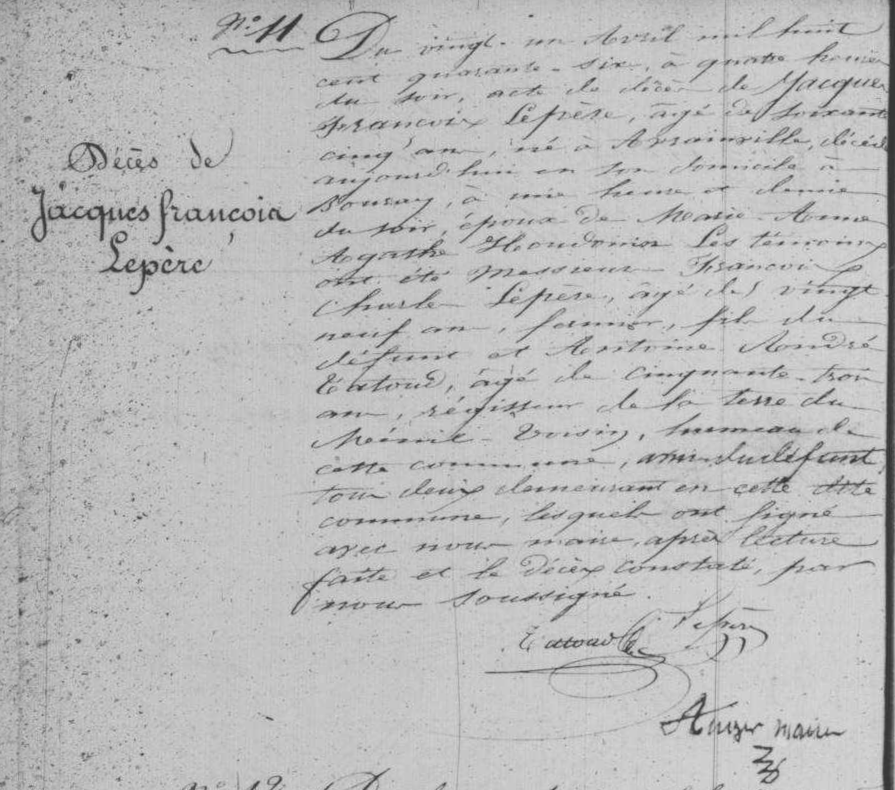 N.° 11
Décès de
Jacques françois
Lepère
Du vingt-un Avril mil huit
cent quarante-six, à quatre heures
du soir, acte de décès de Jacques
François Lepère, âgé de soixante
cinq ans, né à Arrainville, décédé
aujourd'hui en son domicile à
Bouray, à une heure et demie
du soir, époux de Marie-Anne
Agathe Les témoins
ont été Messieurs François
Charles Lepère, âgé de vingt
neuf ans, fermier, fils du
défunt et Antoine André
Tatoud, âgé de cinquante-trois
ans, régisseur de la terre du
Mesnil-Voisin, hameau de
cette commune, ami du défunt,
tous deux demeurant en cette dite
commune, lesquels ont signé
avec nous maire, après lecture
faite et le décès constaté, par
nous soussigné.
Tatoud Lepère
Auger maire
N° 12